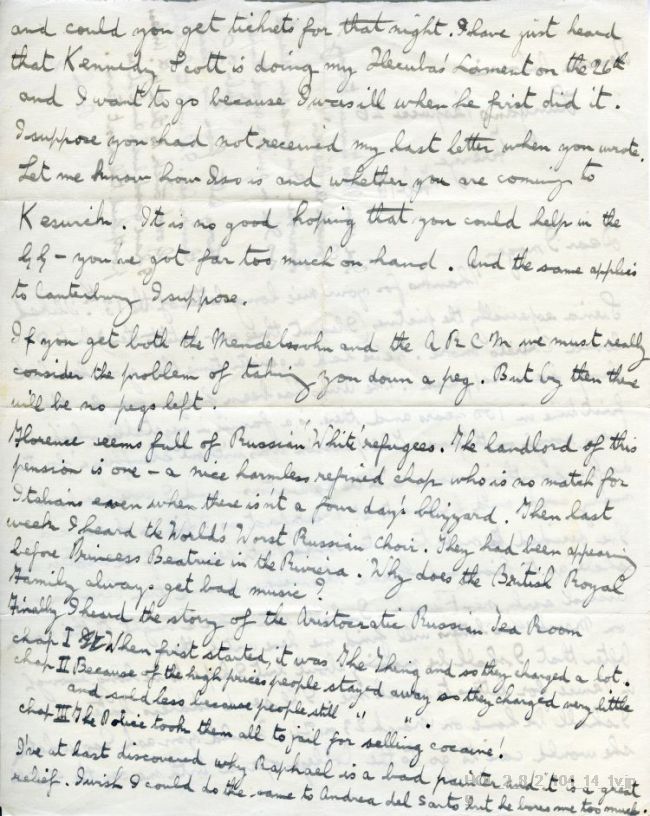 and could you get tickets for that night. I have just heard
that Kennedy Scott is doing my Hecuba's Lament on the 26th
and I want to go because I was ill when he first did it.
I suppose you had not received my last letter when you wrote.
Let me know how Iso is and whether you are coming to
Keswick. It is no good hoping that you could help in the
GG - you've got far too much on hand. And the same applies
to Canterbury I suppose.
If you get both the Mendelssohn and the A R C M we must really
consider the problem of taking you down a peg. But by then there
will be no pegs left.
Florence seems full of Russian 'White' refugees. The landlord of this
pension is one - a nice harmless refined chap who is no match for
Italians even when there isn't a four day's blizzard. Then last
week I heard the World's Worst Russian Choir. They had been appearing
before Princess Beatrice in the Riviera. Why does the British Royal
Family always get bad music?
Finally I heard the story of the Aristocratic Russian Tea Room
chap I When first started, it was The Thing and so they charged a lot.
chap II Because of the high prices people stayed away so they charged very little
and sold less because people still " " .
chap III The Police took them all to jail for selling cocaine!
I've at last discovered why Raphael is a bad painter and it is a great
relief. I wish I could do the same to Andrea del Sarto but he bores me too much.